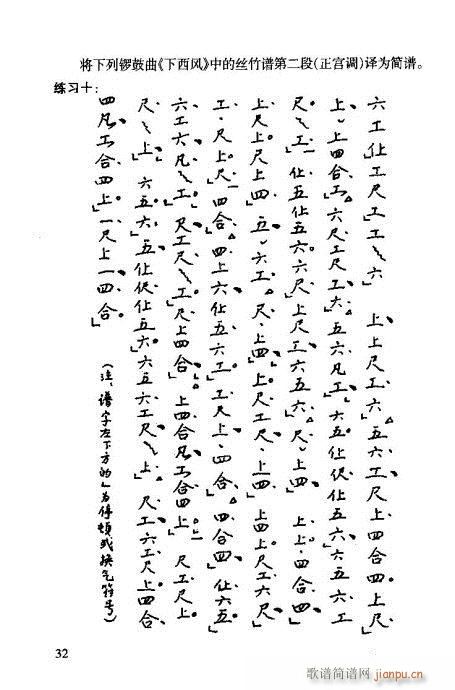 将下列锣鼓曲《下西风》中的丝竹谱第二段(正宫调)译为简谱。
练习十:
六工仩工尺工工六 上上尺工六五六工尺上四合四上尺
上上四合工六尺工尺工六五六凡工六五仩伬仩五六六五六工
尺工 仩五仩五六六尺上尺工六五六尺上四 上上四合四
上尺上尺上四 五六工尺上四上尺工尺上四 上四上尺工六尺
工尺上上尺四合四上六仩六工工尺上四合四合四仩六五
六工六凡工尺工尺工尺上四合上四合凡工合四上 尺工尺上
尺上 六五六五仩伬仩五六六五六工尺上 尺工六工尺上四合
四凡工合四上一尺上一四合
(注:谱字左下方的」为停顿或换气符号)
32
歌谱简谱网
jianpu.cn